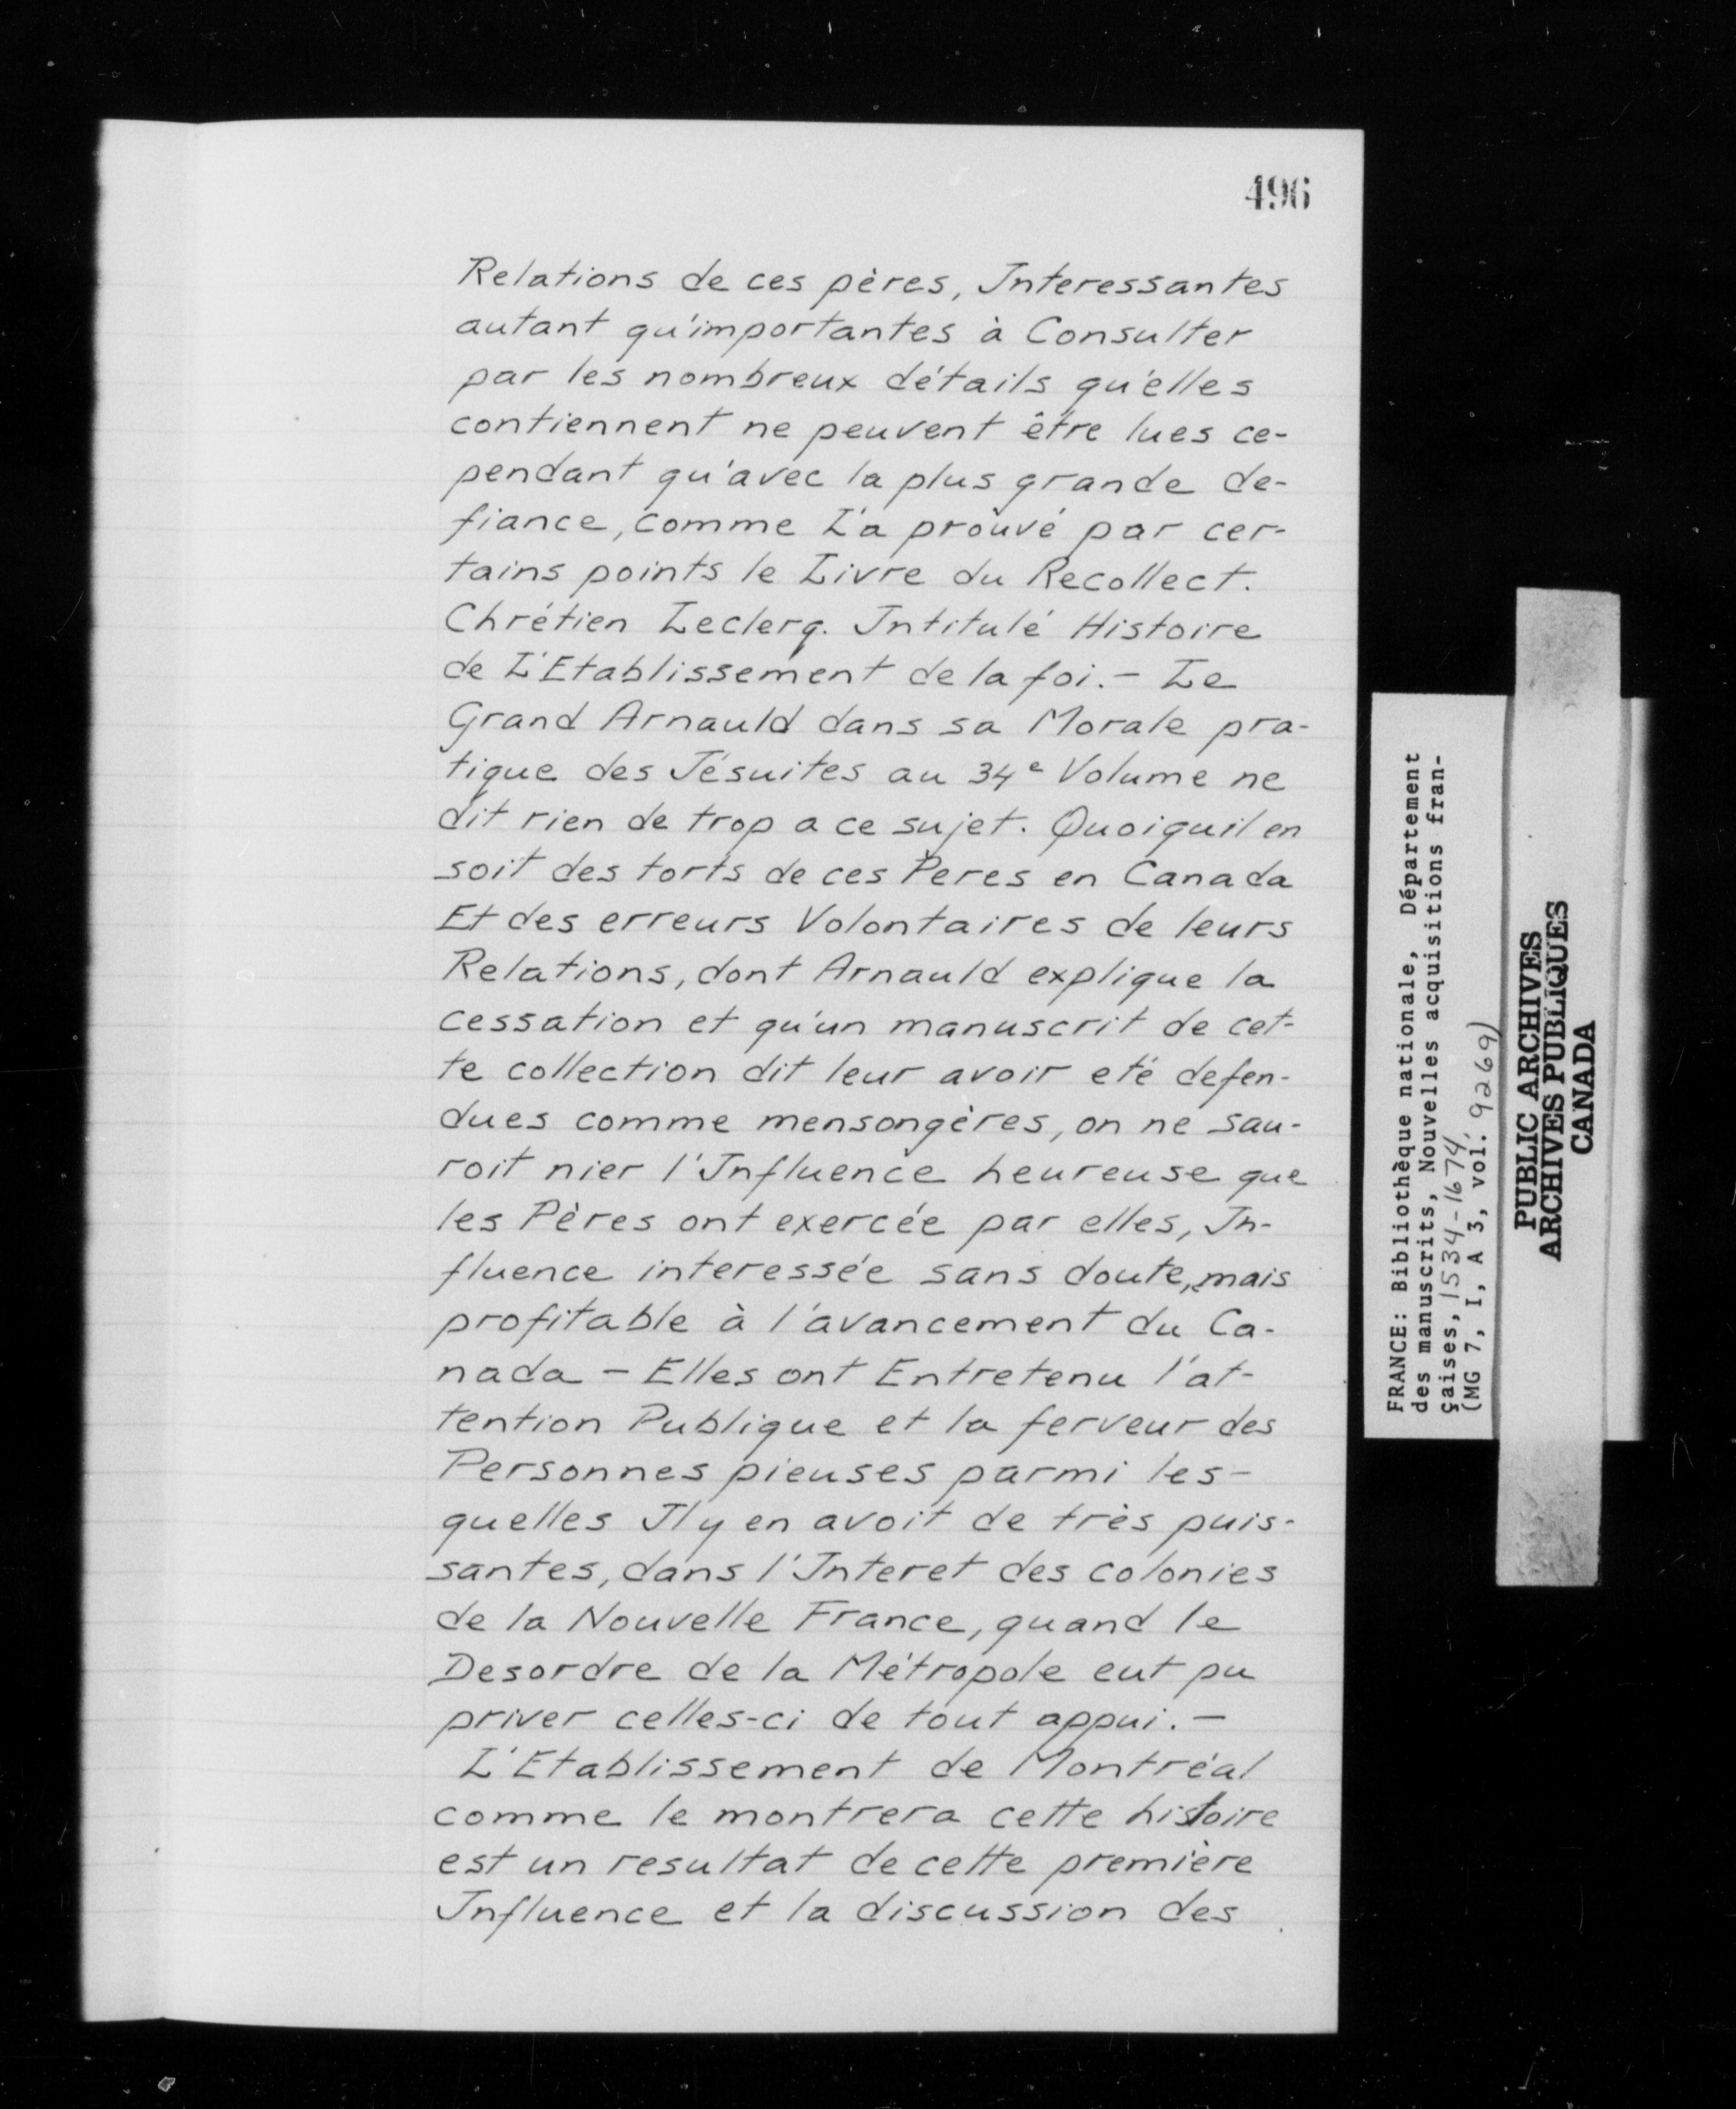 496
Relations de ces pères, Interessantes
autant qu'importantes à Consulter
par les nombreux détails qu'elles
contiennent ne peuvent être lues ce-
pendant qu'avec la plus grande de-
fiance, comme L'a prouvé par cer-
tains points le Livre du Recollect.
Chrétien Leclerq. Intitulé Histoire
de L'Etablissement de la foi. - Le
Grand Arnauld dans sa Morale pra-
tique des Jésuites au 34e Volume ne
dit rien de trop a ce sujet. Quoiquil en
soit des torts de ces Peres en Canada
Et des erreurs Volontaires de leurs
Relations, dont Arnauld explique la
cessation et qu'un manuscrit de cet-
te collection dit leur avoir eté defen-
dues comme mensongères, on ne sau-
roit nier l'Influence heureuse que
les Pères ont exercée par elles, In-
fluence interessée sans doute, mais
profitable à l'avancement du Ca-
nada - Elles ont Entretenu l'at-
tention Publique et la ferveur des
Personnes pieuses parmi les-
quelles Il y en avoit de très puis-
santes, dans l'Interet des colonies
de la Nouvelle France, quand le
Desordre de la Métropole eut pu
priver celles-ci de tout appui. -
L'Etablissement de Montréal
comme le montrera cette histoire
est un resultat de cette première
Influence et la discussion des
FRANCE: Bibliothèque nationale, Département
des manuscrits, Nouvelles acquisitions fran-
çaises, 1534-1674
(MG 7, I, A 3, vol. 9269)
PUBLIC ARCHIVES
ARCHIVES PUBLIQUES
CANADA